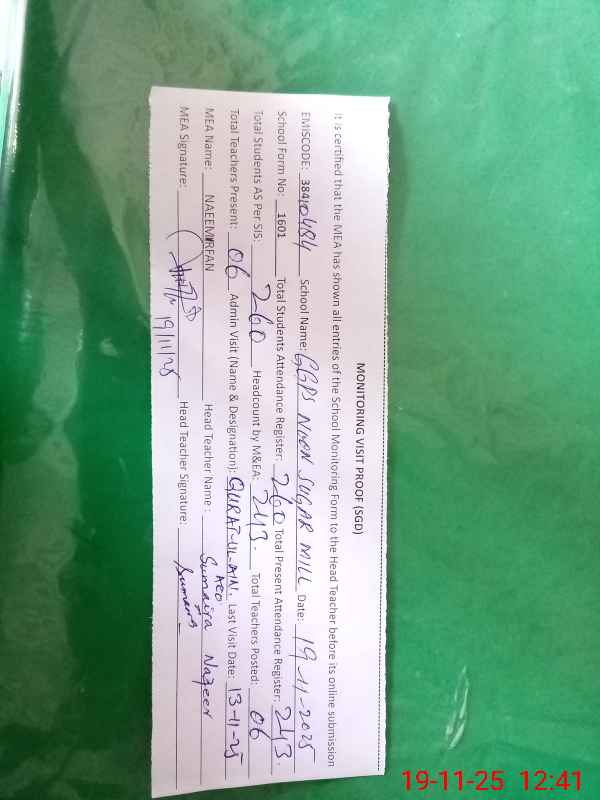 MONITORING VISIT PROOF (SGD)
It is certified that the MEA has shown all entries of the School Monitoring Form to the Head Teacher before its online submission
EMISCODE: 38410484 School Name: GGPS NOON SUGAR MILL Date: 19-11-2025
School Form No: 1601 Total Students Attendance Register: 260 Total Present Attendance Register: 243.
Total Students AS Per SIS: 260 Headcount by M&EA: 243. Total Teachers Posted: 06
Total Teachers Present: 06 Admin Visit (Name & Designation): QURAT-UL-AIN. AEO Last Visit Date: 13-11-25
MEA Name: NAEEM IRFAN Head Teacher Name : Sumaira Nazeer
MEA Signature: 19/11/25 Head Teacher Signature: Sumaira
19-11-25 12:41